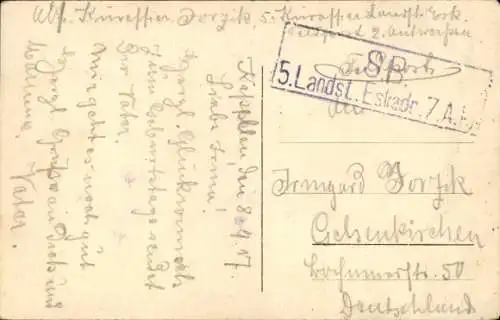 Abs. Kürassier Jorzik 5. Kürassier Landst. Esk.
Feldpost 2. Antwerpen
S.B.
5. Landst. Eskadr. 7. A.K.
Feldpost
An
Irmgard Jorzik
Gelsenkirchen
Bochumerstr. 50
Deutschland
Kapellen, den 8.4.17.
Liebe Irma!
Herzl. Glückwunsch
zum Geburtstage sendet
Dir Vater.
Mir geht es noch gut
Herzl. Grüße an Dich und
Mamma.
Vater.